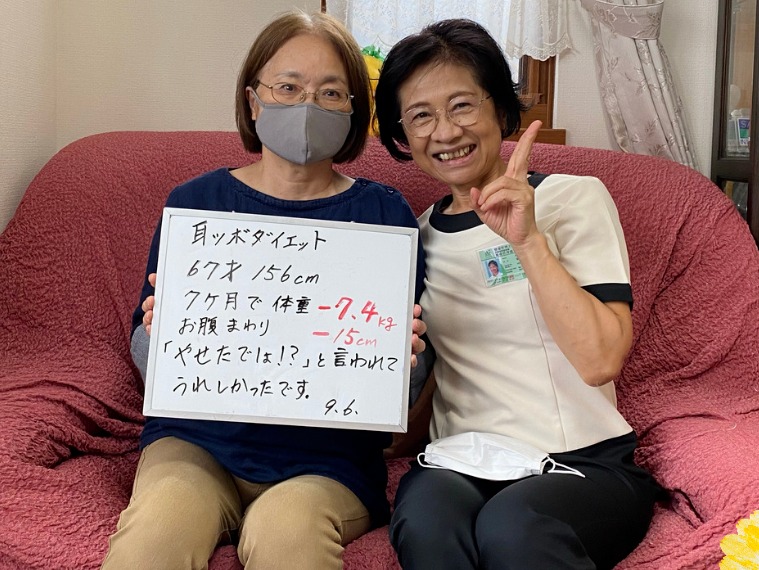 耳ツボダイエット
67才 156cm
7ヶ月で 体重 -7.4kg
お腹まわり -15cm
「やせたでしょ!?」と言われて
うれしかったです。
9.6.